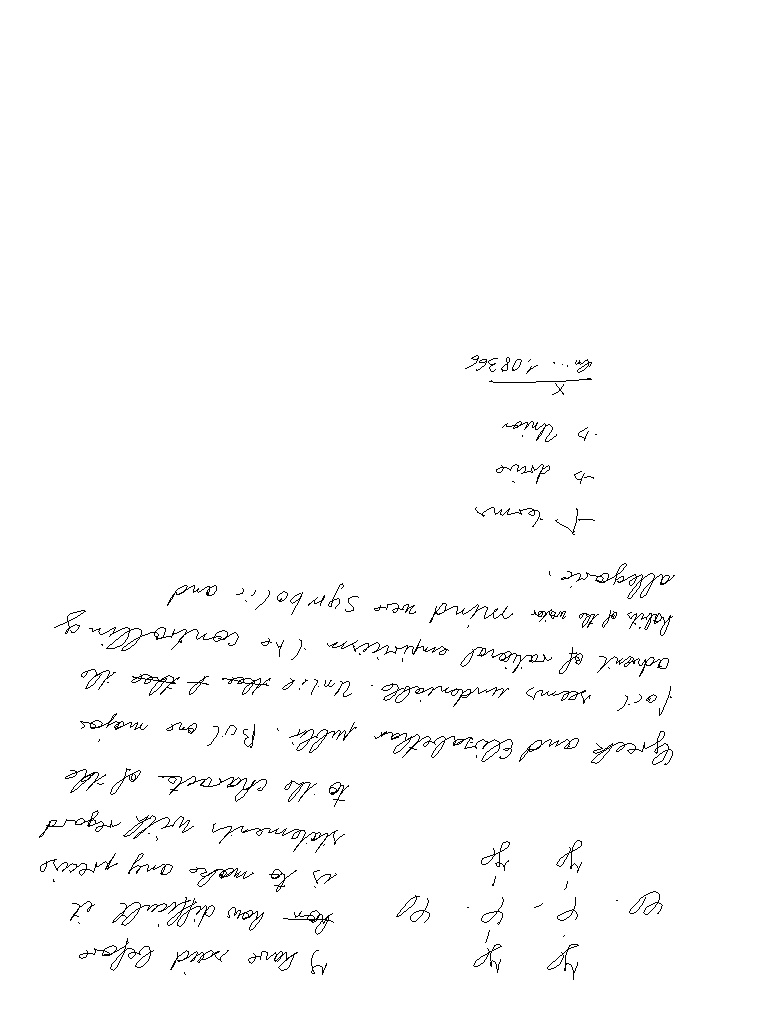 I have said before
how difficult it
is to make any precise
statements with regard
to the characte of the
Greek and Elisabethan public. But one major
fact seems undeniable. Until the
advent of rational empiricism the controlling
habits of the mind were symbolic and
allegoric.
terms
drive
Union
x
ln... 1,08366